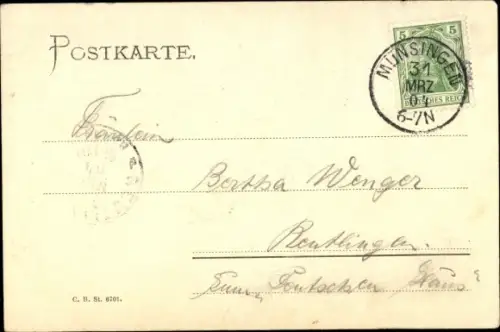 POSTKARTE.
5 5
MÜNSINGEN
31
MRZ
04
6-7N
DEUTSCHES REICH
Fräulein
Bertha Wenger
Reutlingen.
zum „Deutschen Haus"
C. B. St. 6701.